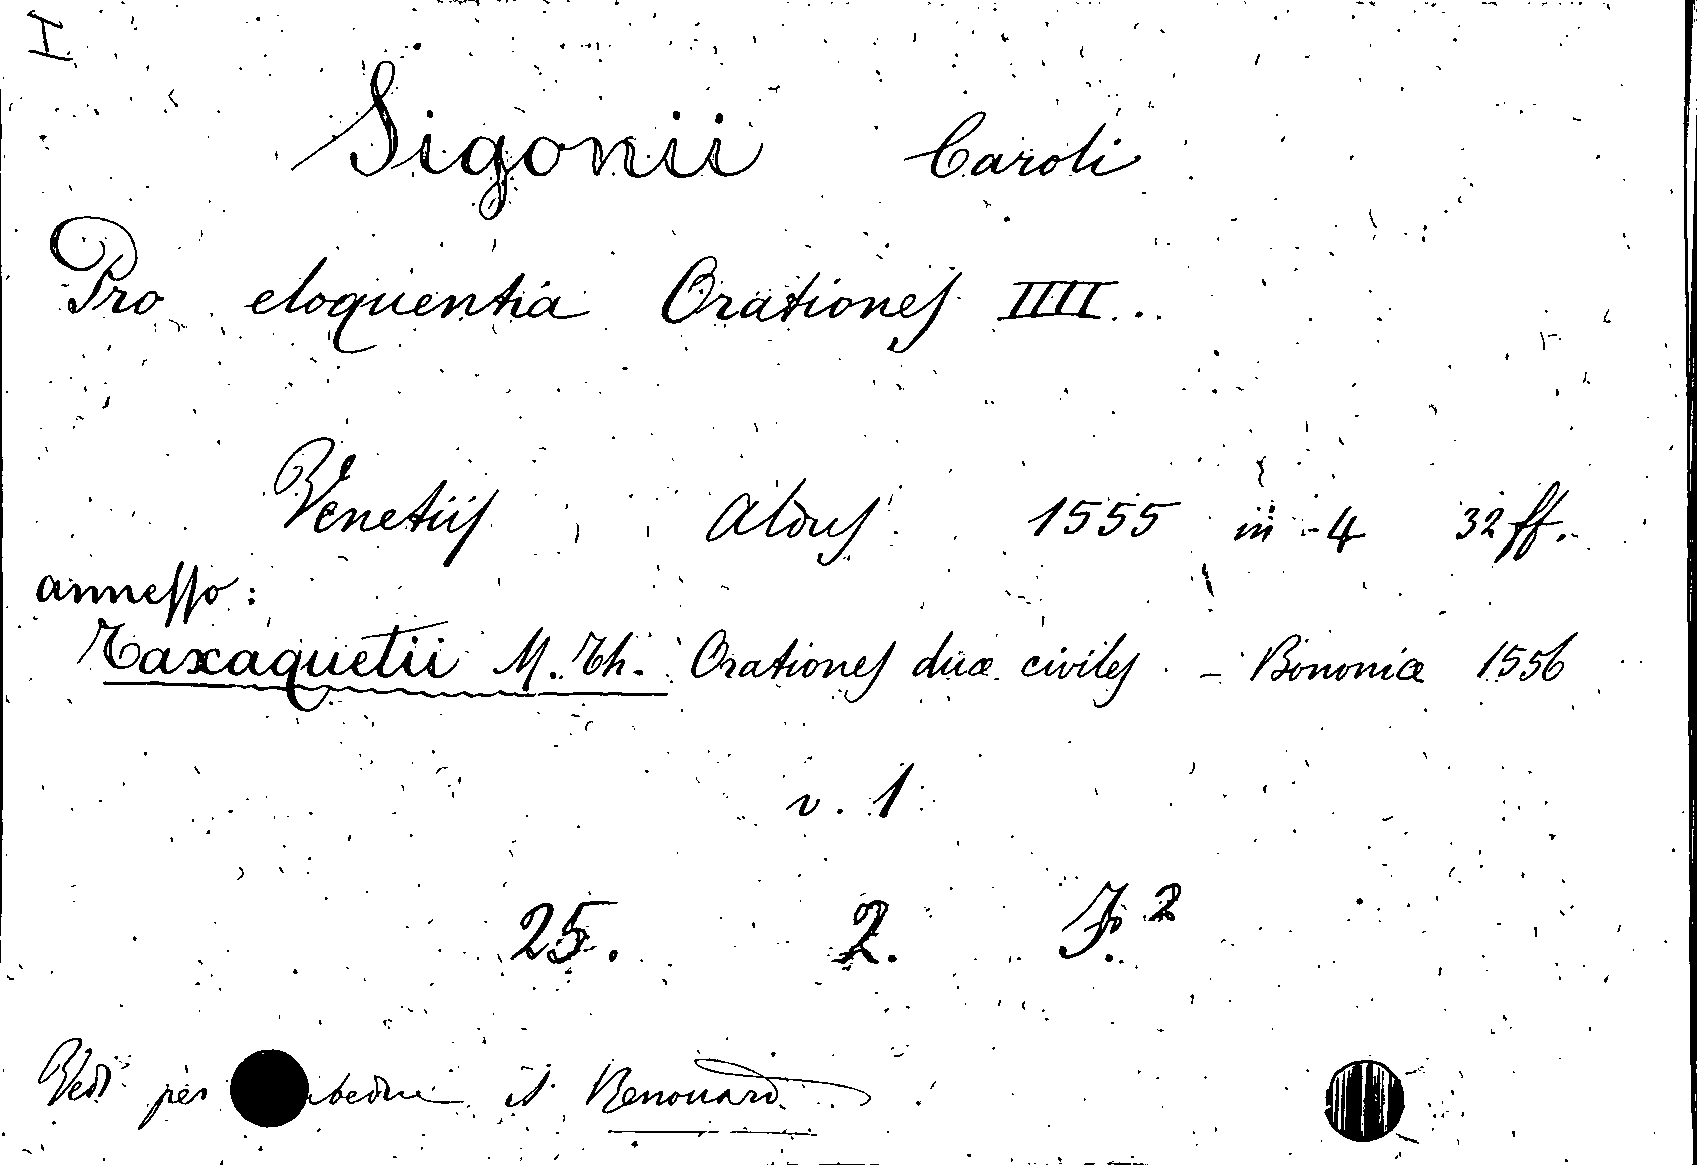 I
Sigonii Caroli
Pro eloquentia Orationes IIII...
Venetiis Aldus 1555 in-4 32 ff.
annesso:
Taxaquetii M. Th. Orationes duæ civiles - Bononiæ 1556
v. 1
25. 2. J.²
Vedi per bedue il Renouard